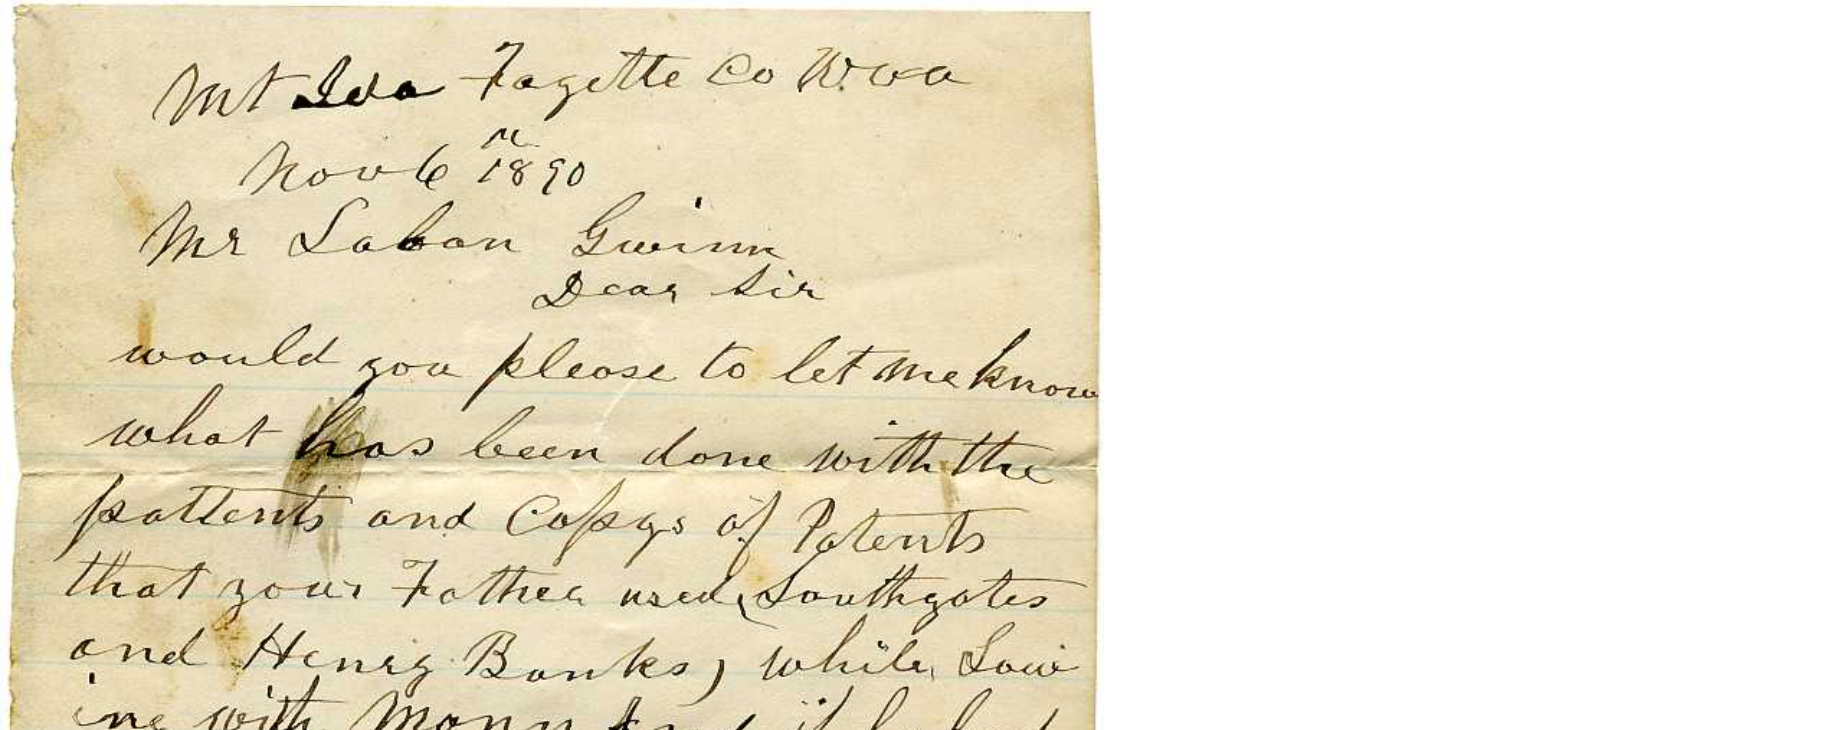 Mt Ida Fayette Co W.va
Nov 6th 1890
Mr Laban Gwinn
Dear Sir
would you please to let me know
what has been done with the
pattents and Copys of Patents
that your Father used (Southgates
and Henry Banks) while Law
ing with Mann